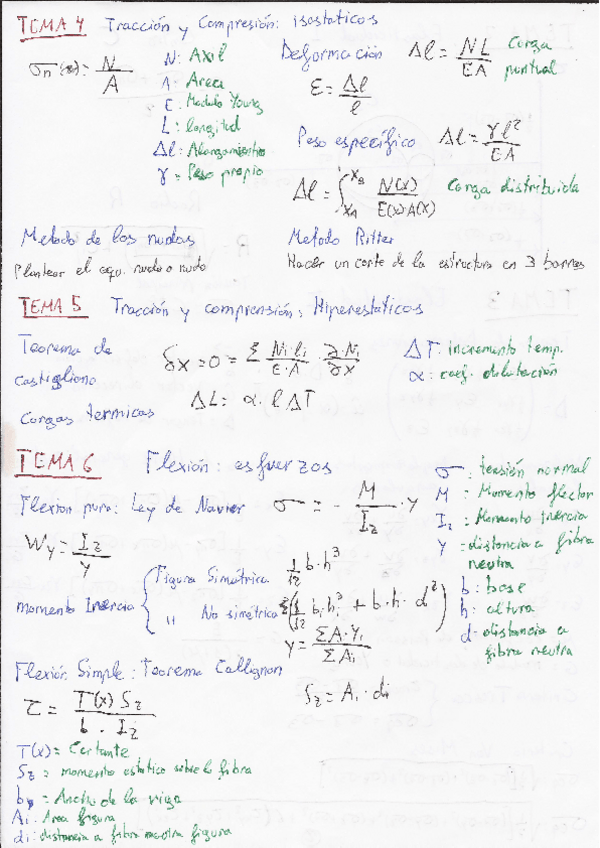 TEMA 4 Tracción y Compresión: isostaticos
σn(x) = N/A
N: Axil
A: Area
E: Modulo Young
L: longitud
Δl: Alargamiento
γ = Peso propio
Deformación Δl = NL/EA Carga puntual
ε = Δl/l
Peso específico Δl = γl²/EA
Δl = ∫_{XA}^{XB} N(x)/E(x)·A(x) Carga distribuida
Metodo de los nudos
Plantear el equ. nudo a nudo
Metodo Ritter
Hacer un corte de la estructura en 3 barras
TEMA 5 Tracción y comprensión: Hiperestaticos
Teorema de castigliano
δx = 0 = Σ Ni·li/E·A · ∂Ni/∂x
ΔT: incremento temp.
α: coef. dilatación
Cargas termicas ΔL = α·l ΔT
TEMA 6 Flexión: esfuerzos
Flexion pura: Ley de Navier σ = - M/Iz · y
Wy = Iz/y
σ: tensión normal
M = Momento flector
Iz = Momento inercia
y = distancia a fibra neutra
b: base
h: altura
d: distancia a fibra neutra
momento Inercia { Figura Simetrica 1/12 b·h³
" No simetrica Σ(1/12 bi h³ + b·h·d²)
y = ΣA·Yi/ΣAi
Flexión Simple: Teorema Collignon
τ = T(x) Sz/b·Iz
Sz = Ai·di
T(x) = Cortante
Sz = momento estatico sobre la fibra
b = Ancho de la viga
Ai: Area figura
di: distancia a fibra neutra figura